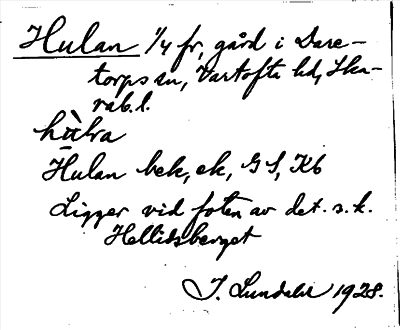 Hulan 1/4 fr, gård i Dare-
torps sn, Vartofta hd, Ska-
rab. l.
hùlra
Hulan bek, ek, GS, Kb
Ligger vid foten av det s.k.
Hellidsberget
J. Lundahl 1928.